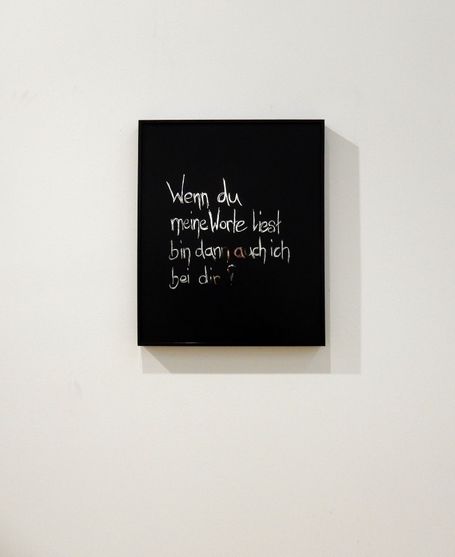 Wenn du
meine Worte liest
bin dann auch ich
bei dir?